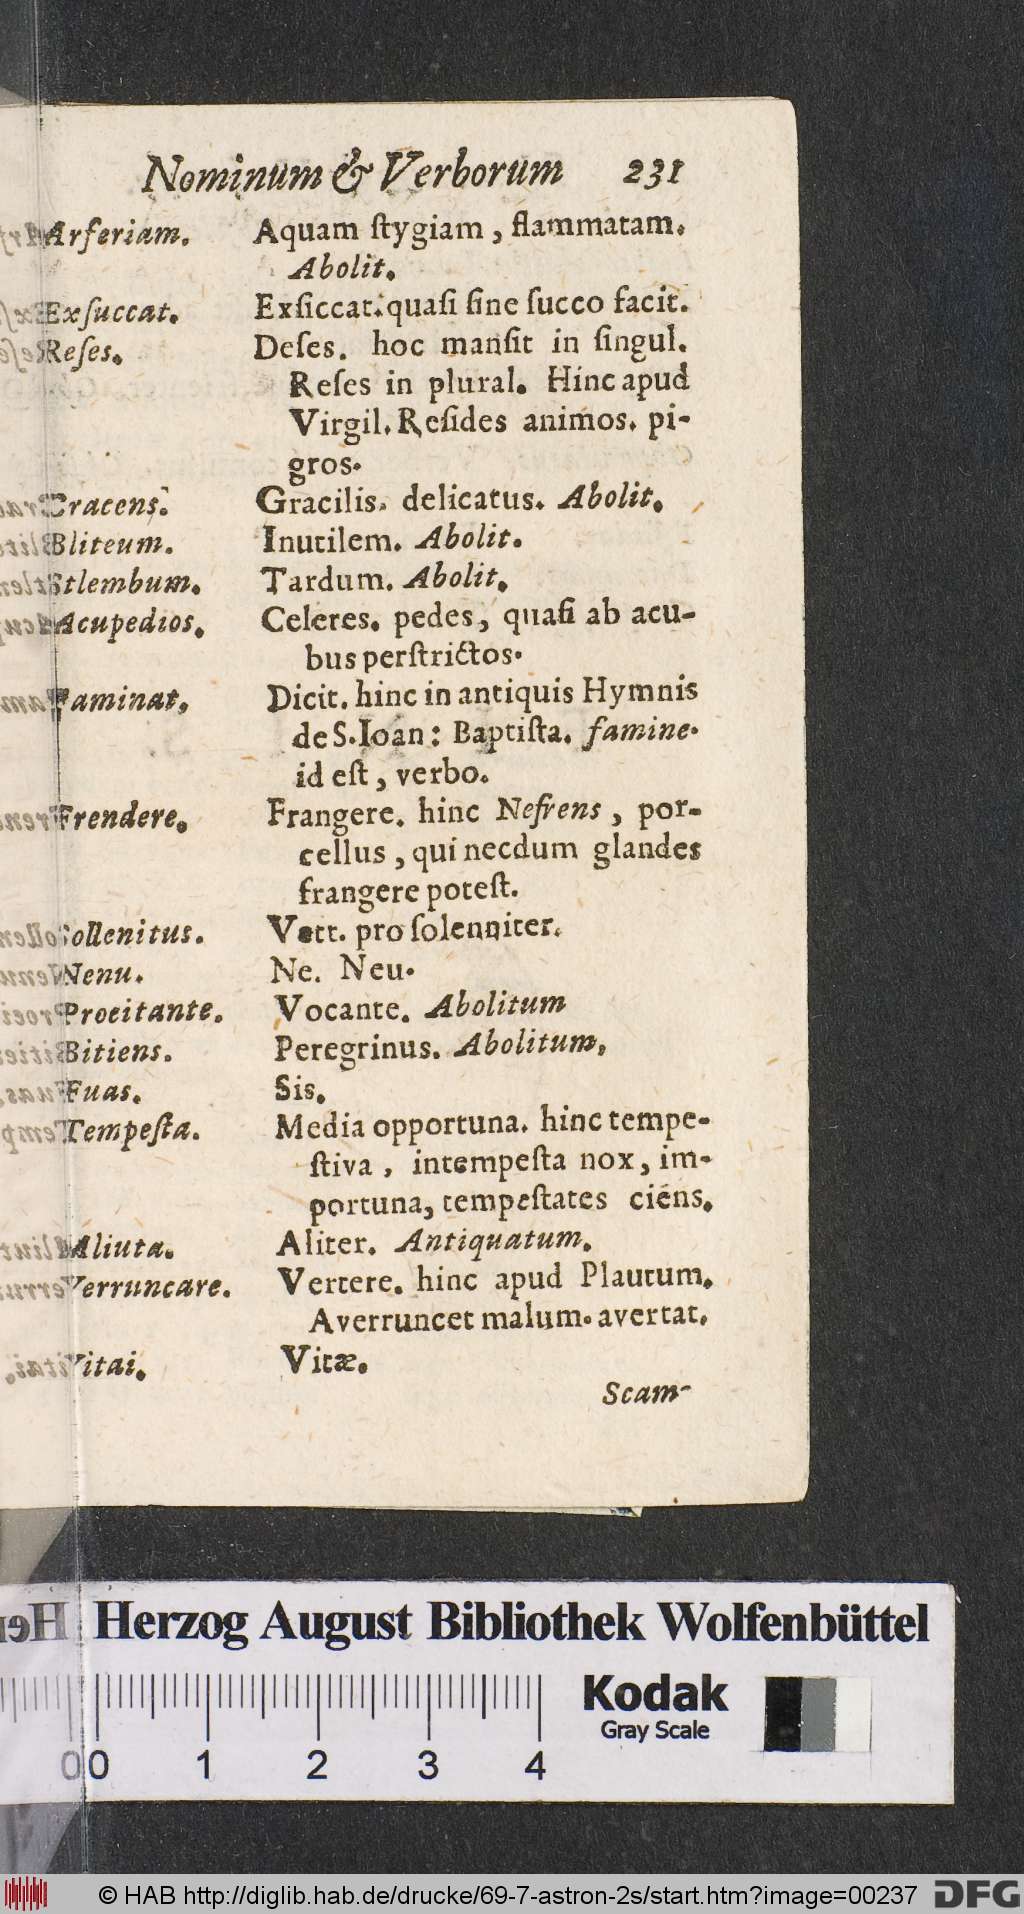 Nominum & Verborum 231
Arferiam. Aquam ſtygiam, flammatam.
Abolit.
Exſuccat. Exſiccat. quaſi ſine ſucco facit.
Reſes. Deſes. hoc manſit in ſingul.
Reſes in plural. Hinc apud
Virgil. Reſides animos. pi-
gros.
Cracens. Gracilis. delicatus. Abolit.
Bliteum. Inutilem. Abolit.
Stlembum. Tardum. Abolit.
Acupedios. Celeres. pedes, quaſi ab acu-
bus perſtrictos.
Faminat. Dicit. hinc in antiquis Hymnis
de S. Ioan: Baptiſta. famine.
id eſt, verbo.
Frendere. Frangere. hinc Nefrens, por-
cellus, qui necdum glandes
frangere poteſt.
Sollenitus. Vett. pro ſolenniter.
Nenu. Ne. Neu.
Procitante. Vocante. Abolitum
Bitiens. Peregrinus. Abolitum.
Fuas. Sis.
Tempeſta. Media opportuna. hinc tempe-
ſtiva, intempeſta nox, im-
portuna, tempeſtates ciens.
Aliuta. Aliter. Antiquatum.
Verruncare. Vertere. hinc apud Plautum.
Averruncet malum. avertat.
Vitai. Vitæ.
Scam-
Herzog August Bibliothek Wolfenbüttel
Kodak
Gray Scale
0 0 1 2 3 4
© HAB http://diglib.hab.de/drucke/69-7-astron-2s/start.htm?image=00237 DFG